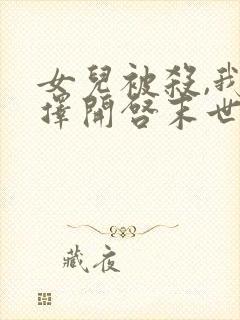 女兒被殺,我
擇開啓末世
藏夜